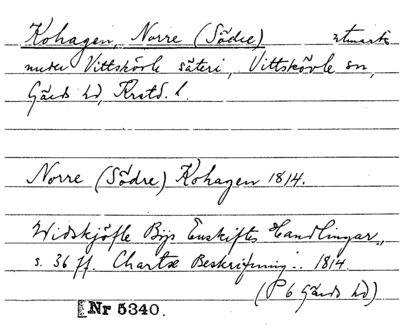 Kohagen, Norre (Södre) utmark
under Vittskövle säteri, Vittskövle sn,
Gärds hd, Krstd. l.
Norre (Södre) Kohagen 1814.
Widskjöfle Bys Enskiftes Handlingar,,
s. 36 ff. Chartæ Beskrifning :. 1814
(P 6 Gärds hd)
Nr 5340.